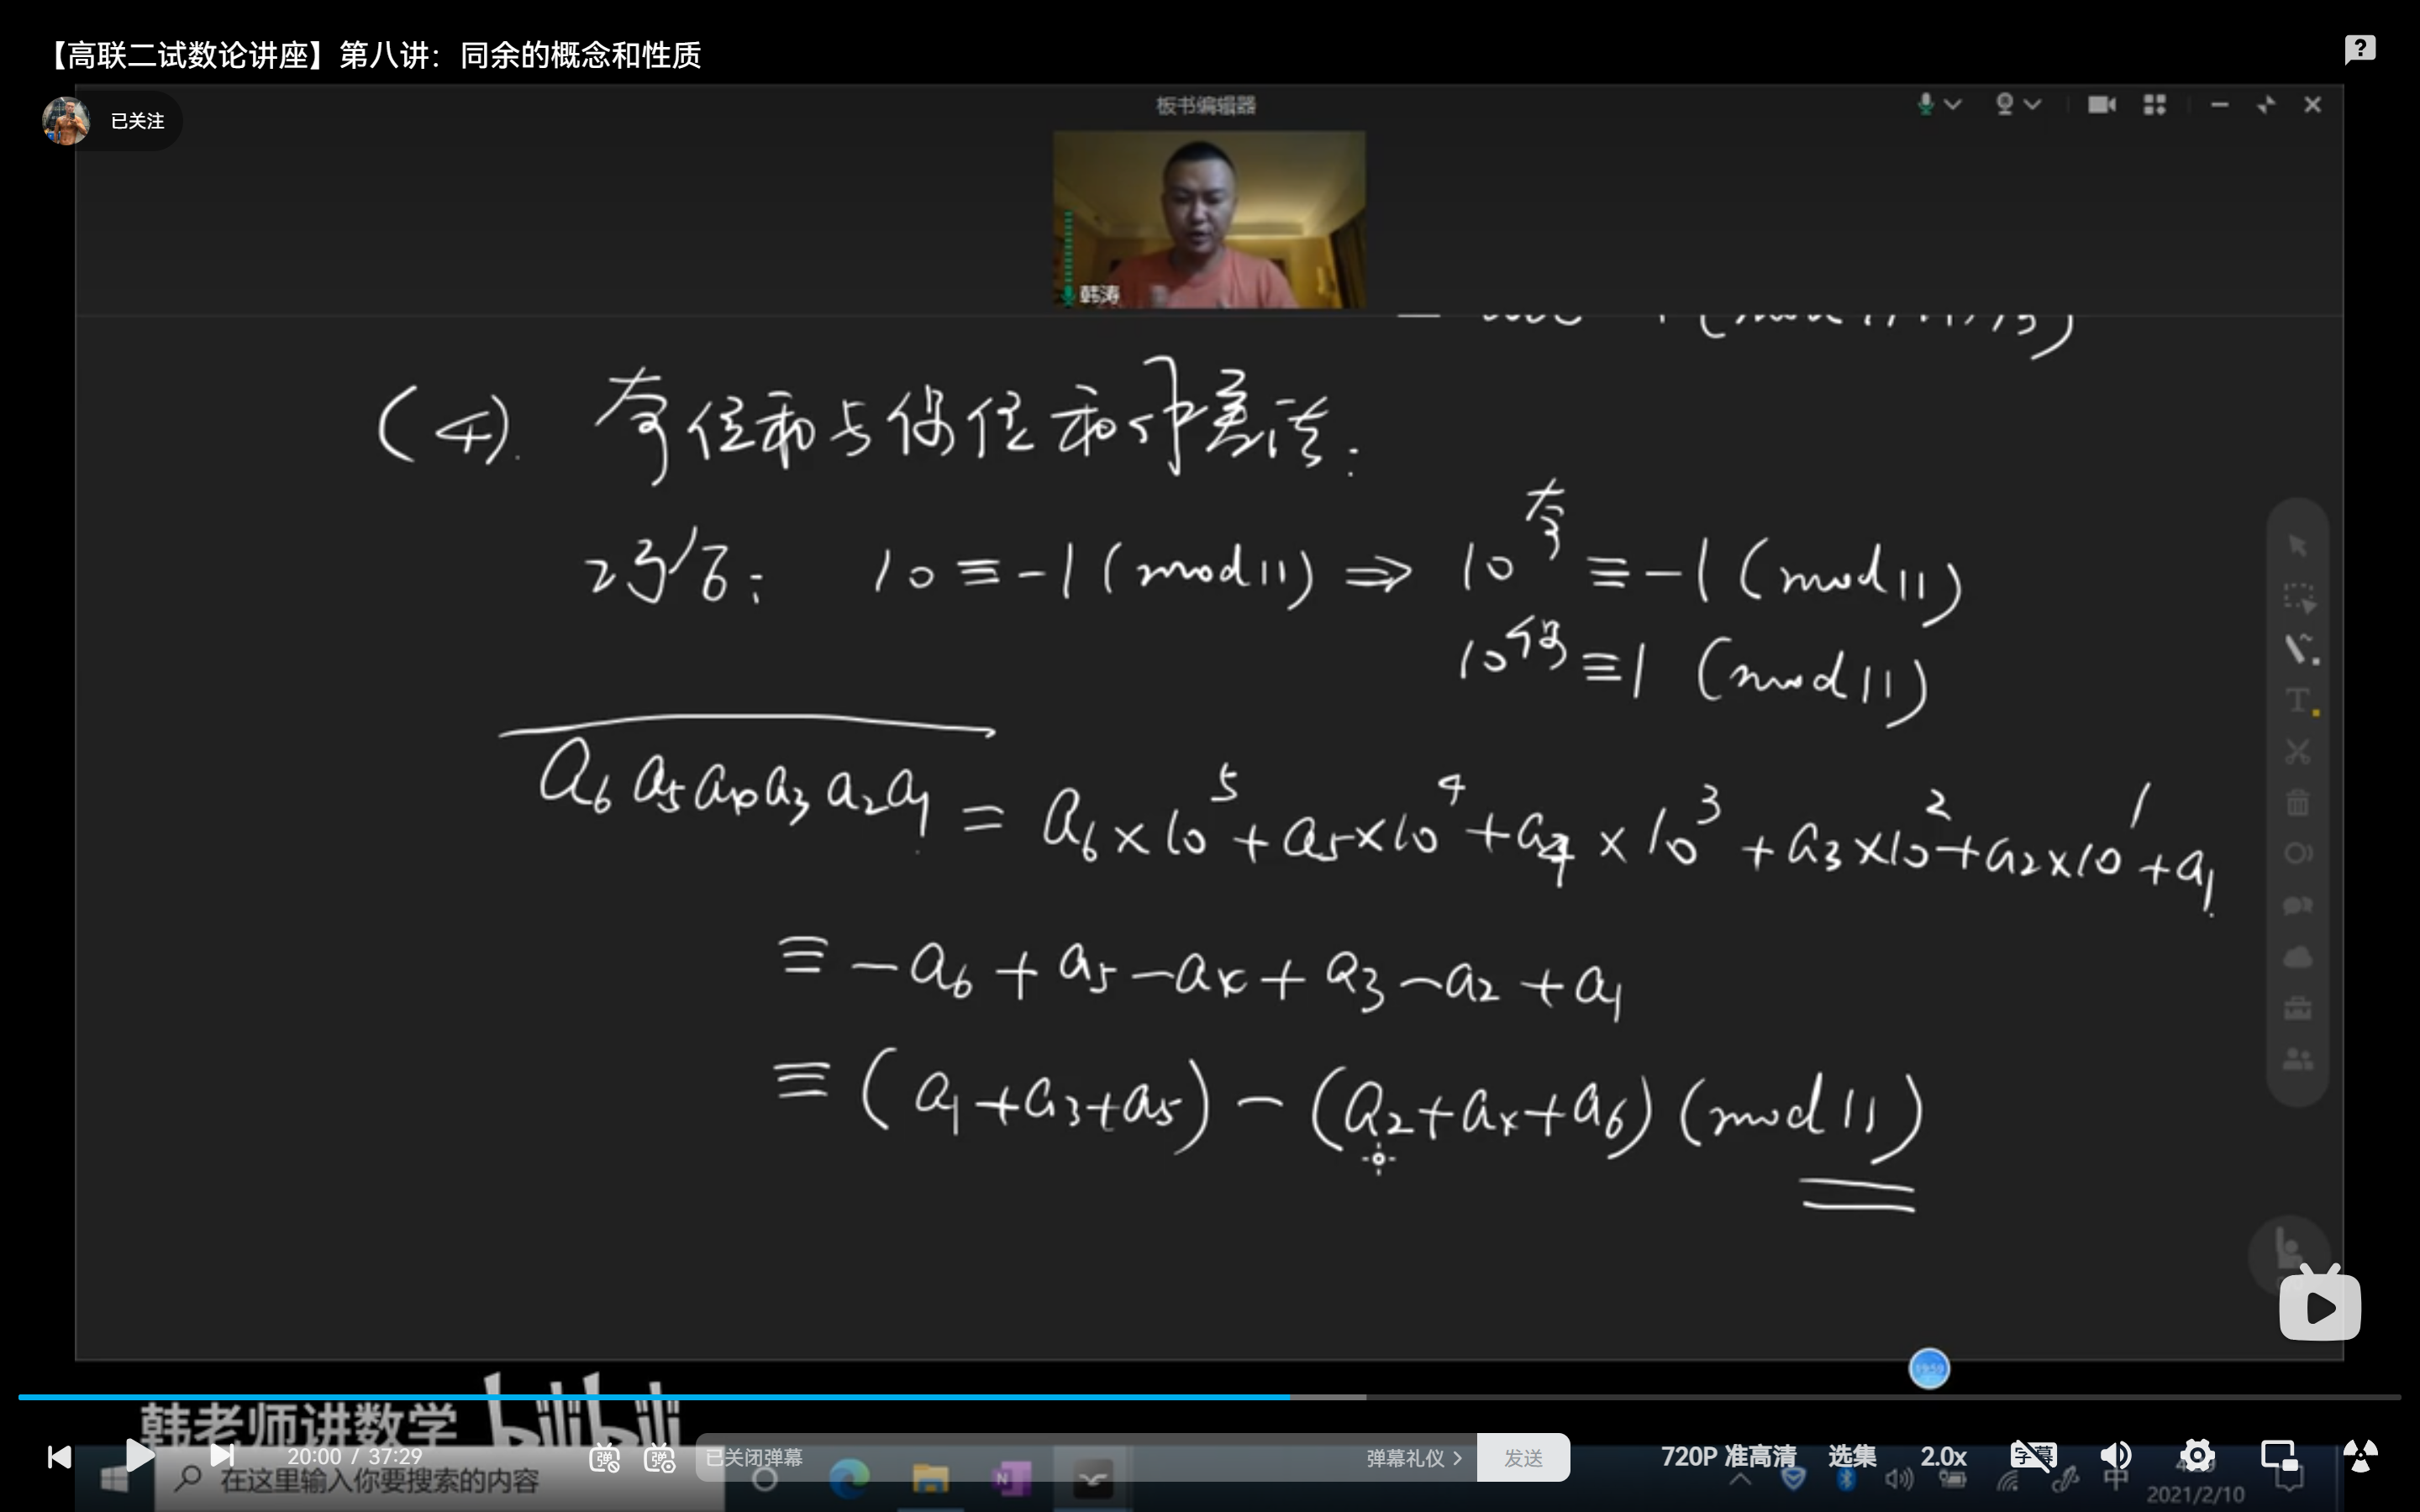 【高联二试数论讲座】第八讲：同余的概念和性质
已关注
板书编辑器
韩涛
(4). 奇位和与偶位和作差法:
证明: 10≡-1(mod11)⇒10^奇≡-1(mod11)
10^偶≡1 (mod11)
a₆a₅a₄a₃a₂a₁ = a₆×10⁵+a₅×10⁴+a₄×10³+a₃×10²+a₂×10¹+a₁
≡-a₆+a₅-a₄+a₃-a₂+a₁
≡(a₁+a₃+a₅)-(a₂+a₄+a₆)(mod11)
韩老师讲数学 bilibili
20:00 / 37:29
已关闭弹幕
弹幕礼仪
发送
720P 准高清
选集
2.0x
在这里输入你要搜索的内容
中
2021/2/10